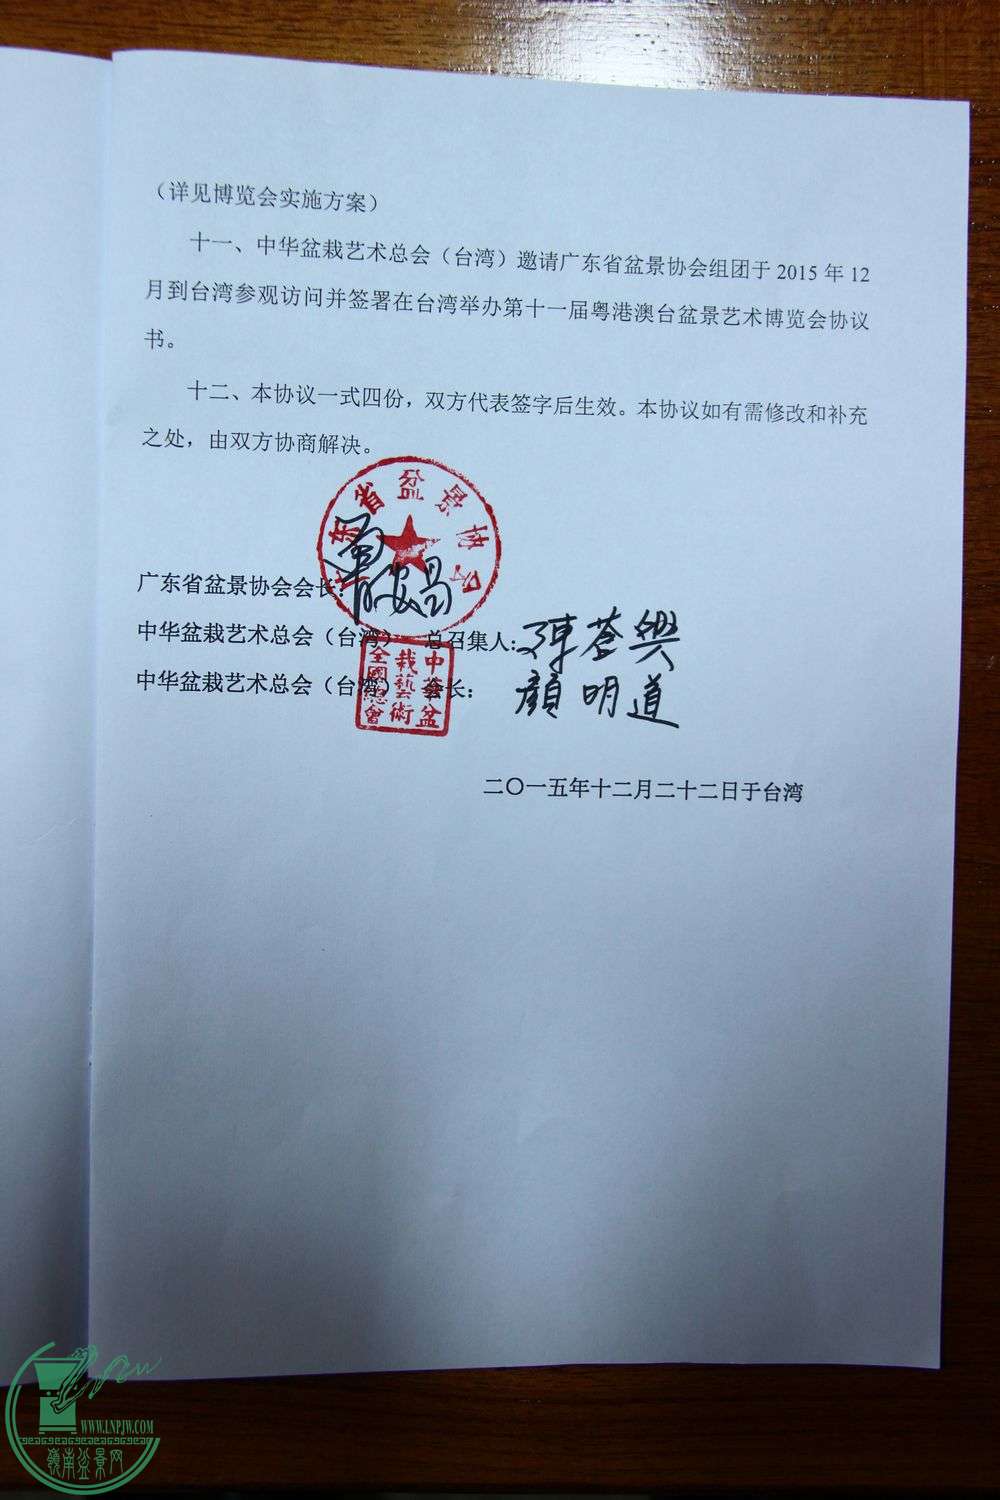 （详见博览会实施方案）
十一、中华盆栽艺术总会（台湾）邀请广东省盆景协会组团于 2015 年 12
月到台湾参观访问并签署在台湾举办第十一届粤港澳台盆景艺术博览会协议
书。
十二、本协议一式四份，双方代表签字后生效。本协议如有需修改和补充
之处，由双方协商解决。
东省盆景协会
广东省盆景协会会长：
中华盆栽艺术总会（台湾） 总召集人：陳蒼興
中华盆栽艺术总会（台湾） 会长：顏明道
中華盆
栽藝術
全國總會
二〇一五年十二月二十二日于台湾
WWW.LNPJW.COM
嶺南盆景网